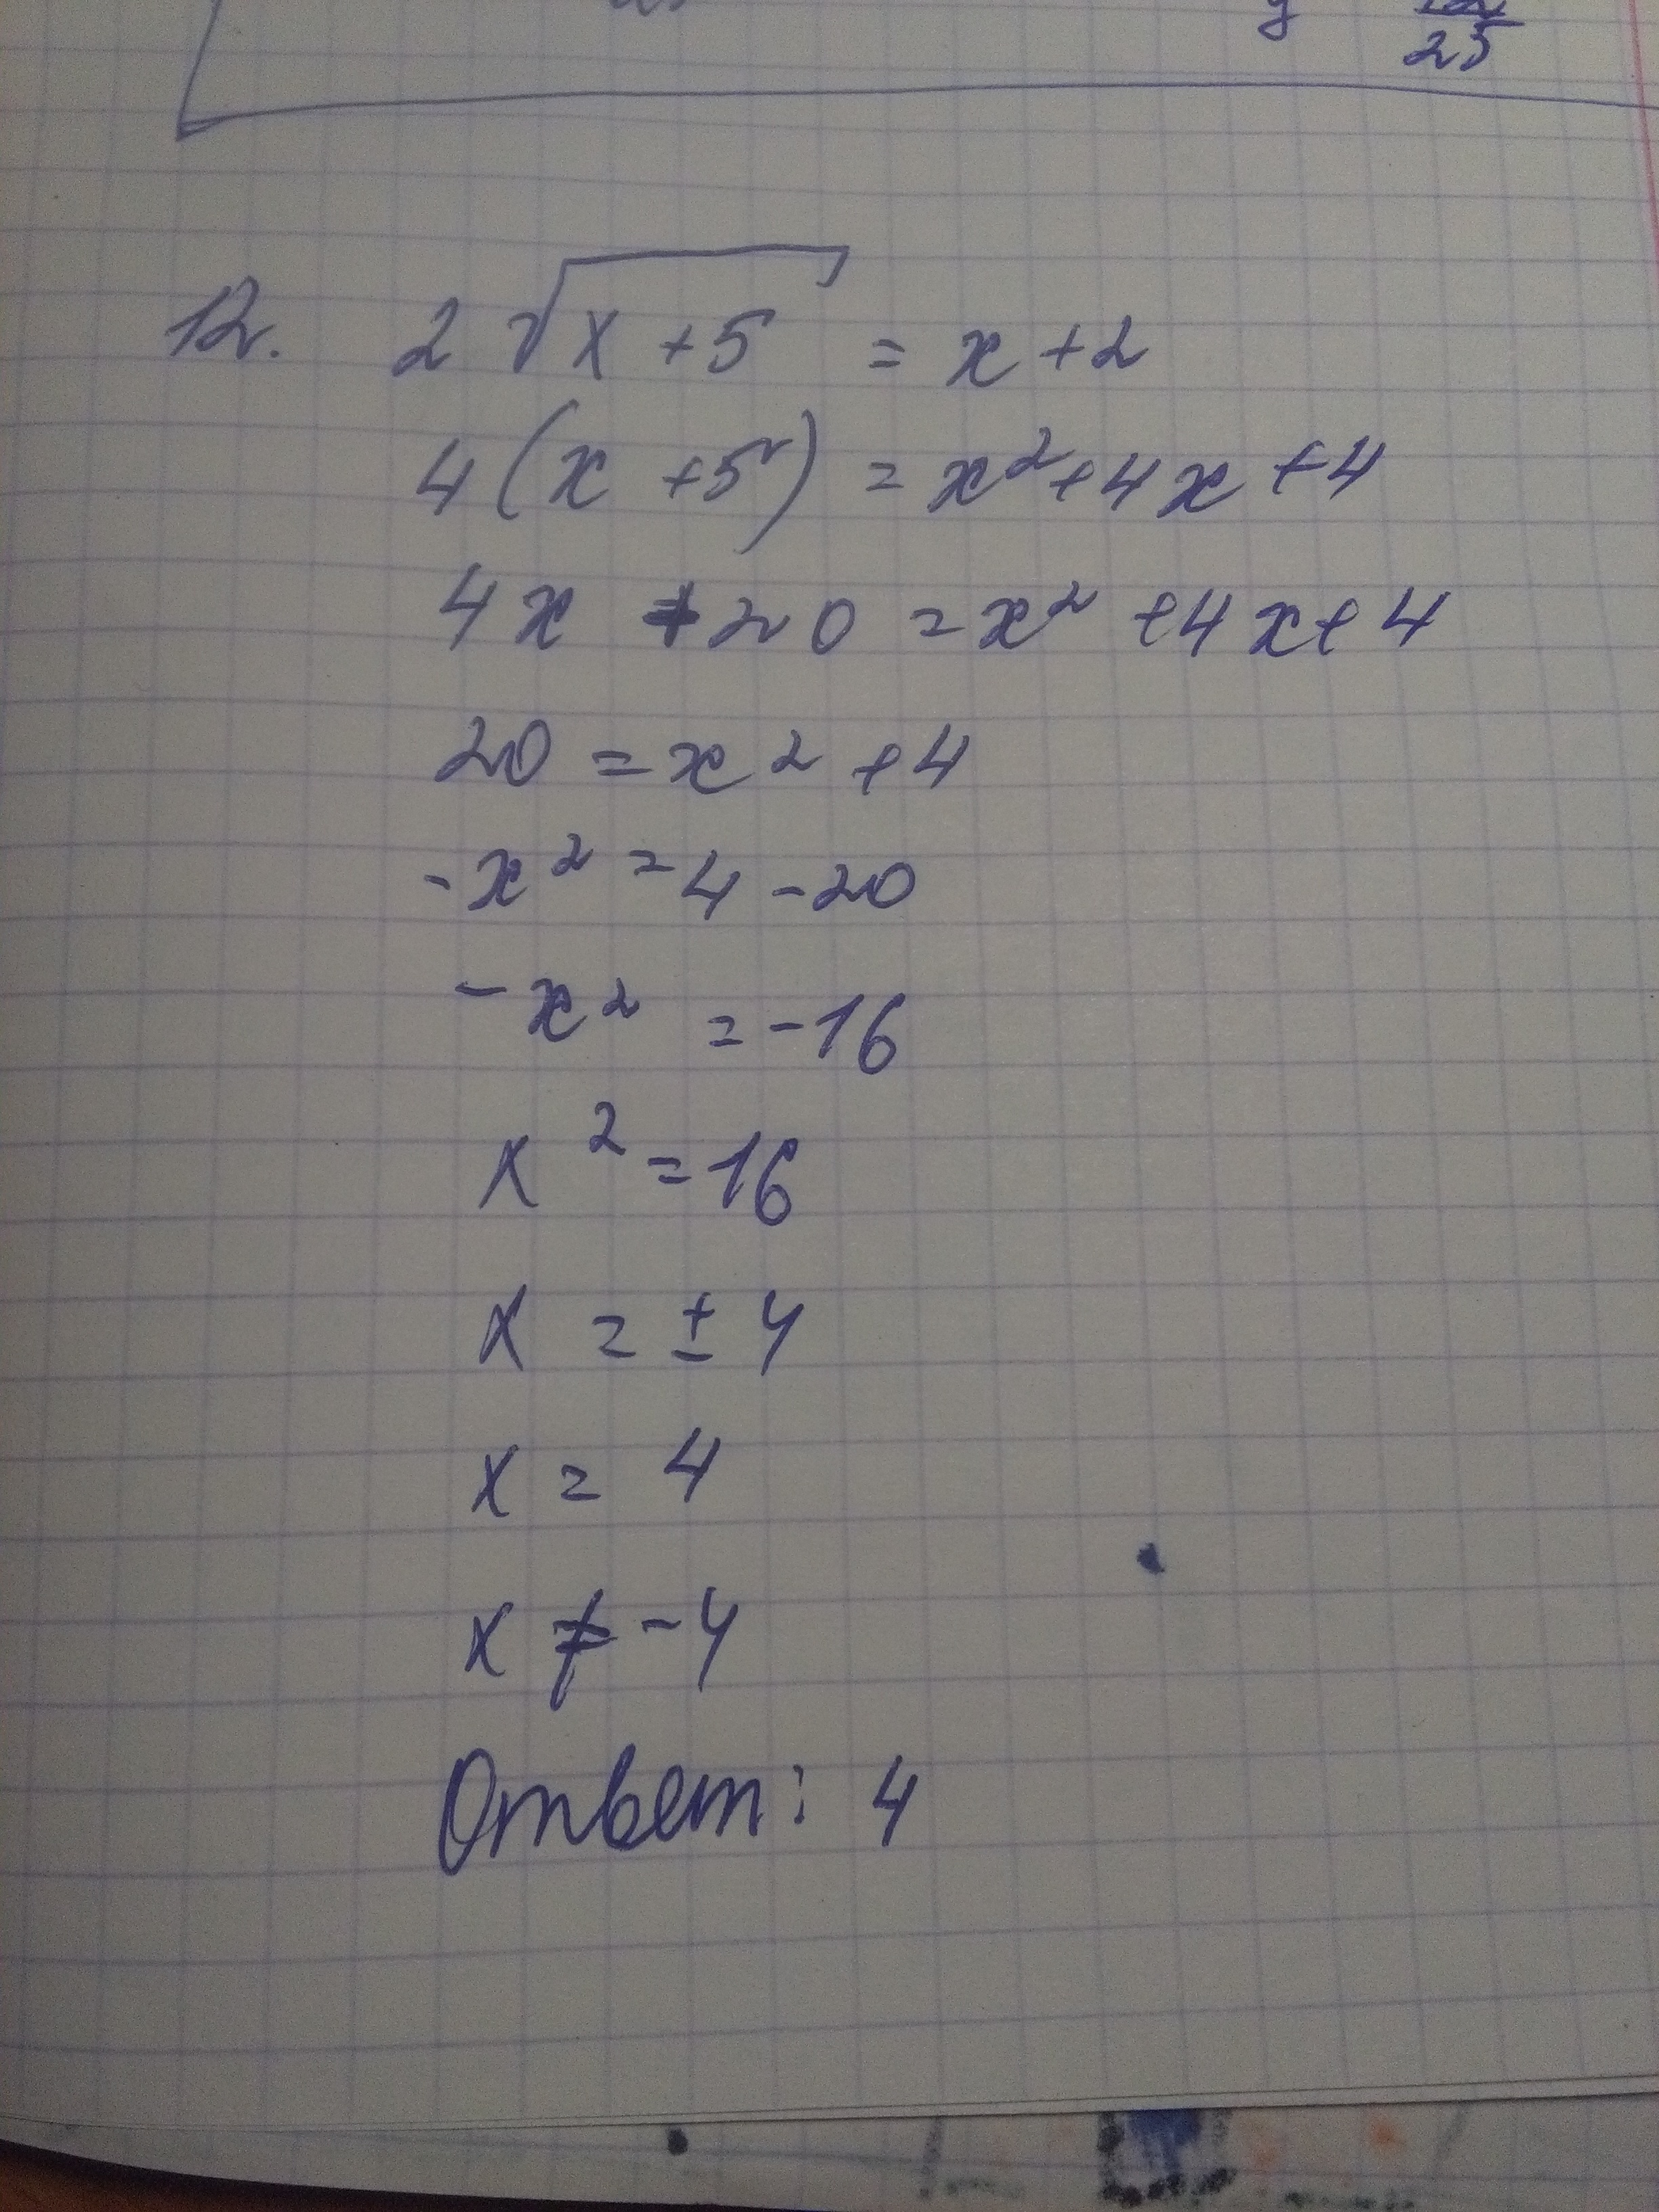 25
12. 2√(x+5) = x+2
4(x+5) = x²+4x+4
4x+20 = x²+4x+4
20 = x²+4
-x² = 4-20
-x² = -16
x² = 16
x = ±4
x = 4
x ≠ -4
Ответ: 4